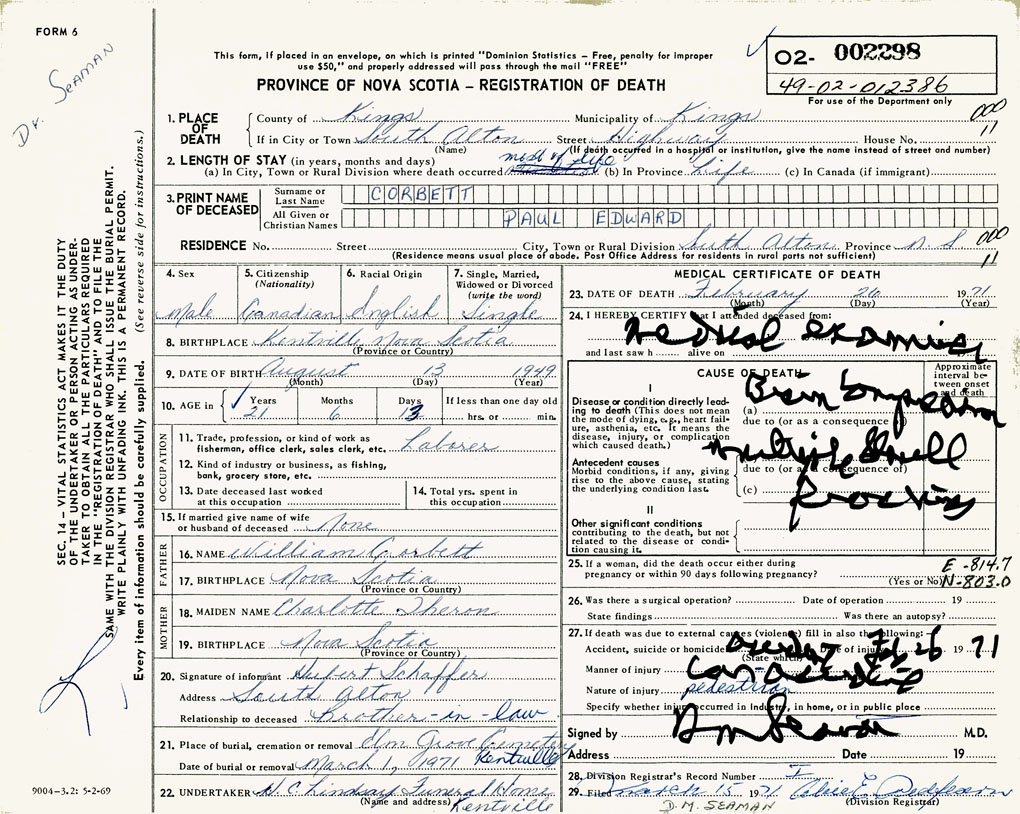 FORM 6
Dr. SEAMAN
This form, if placed in an envelope, on which is printed "Dominion Statistics – Free, penalty for improper
use $50," and properly addressed will pass through the mail "FREE"
PROVINCE OF NOVA SCOTIA – REGISTRATION OF DEATH
02- 002298
49-02-012386
For use of the Department only
000
11
1. PLACE OF DEATH
County of Kings Municipality of Kings
If in City or Town South Alton Street Highway House No.
(Name) (If death occurred in a hospital or institution, give the name instead of street and number)
2. LENGTH OF STAY (in years, months and days)
(a) In City, Town or Rural Division where death occurred most of life (b) In Province Life (c) In Canada (if immigrant)
3. PRINT NAME OF DECEASED
Surname or Last Name CORBETT
All Given or Christian Names PAUL EDWARD
RESIDENCE No. Street City, Town or Rural Division South Alton Province N.S
(Residence means usual place of abode. Post Office Address for residents in rural parts not sufficient)
000
11
4. Sex
Male
5. Citizenship
(Nationality)
Canadian
6. Racial Origin
English
7. Single, Married,
Widowed or Divorced
(write the word)
Single
8. BIRTHPLACE Kentville Nova Scotia
(Province or Country)
9. DATE OF BIRTH August 13 1949
(Month) (Day) (Year)
10. AGE in Years Months Days If less than one day old
21 6 13 hrs. or min.
OCCUPATION
11. Trade, profession, or kind of work as
fisherman, office clerk, sales clerk, etc. Laborer
12. Kind of industry or business, as fishing,
bank, grocery store, etc.
13. Date deceased last worked
at this occupation
14. Total yrs. spent in
this occupation
15. If married give name of wife
or husband of deceased None
FATHER
16. NAME William Corbett
17. BIRTHPLACE Nova Scotia
(Province or Country)
MOTHER
18. MAIDEN NAME Charlotte Theron
19. BIRTHPLACE Nova Scotia
(Province or Country)
20. Signature of informant Hubert Schaffer
Address South Alton
Relationship to deceased Brother-in-law
21. Place of burial, cremation or removal Elm Grove Cemetery
Kentville
Date of burial or removal March 1, 1971
22. UNDERTAKER H. C. Lindsay Funeral Home
(Name and address) Kentville
MEDICAL CERTIFICATE OF DEATH
23. DATE OF DEATH February 26 1971
(Month) (Day) (Year)
24. I HEREBY CERTIFY that I attended deceased from:
Medical Examiner
and last saw h alive on
CAUSE OF DEATH
Approximate
interval be-
tween onset
and death
I
Disease or condition directly lead-
ing to death (This does not mean
the mode of dying, e.g., heart fail-
ure, asthenia, etc. It means the
disease, injury, or complication
which caused death.)
(a) Brain
due to (or as a consequence of)
Antecedent causes
Morbid conditions, if any, giving
rise to the above cause, stating
the underlying condition last.
Multiple Skull
due to (or as a consequence of)
(c)
II
Other significant conditions
contributing to the death, but not
related to the disease or condi-
tion causing it.
25. If a woman, did the death occur either during
pregnancy or within 90 days following pregnancy?
(Yes or No)
E -814.7
N-803.0
26. Was there a surgical operation? Date of operation 19
State findings Was there an autopsy?
27. If death was due to external causes (violence) fill in also the following:
Accident, suicide or homicide accident Date of injury Feb 26 19 71
(State which)
Manner of injury Car accident
Nature of injury pedestrian
Specify whether injury occurred in Industry, in home, or in public place
Signed by D M Seaman M.D.
Address Date 19
28. Division Registrar's Record Number I
29. Filed March 15 1971
D.M. SEAMAN (Division Registrar)
SEC. 14 – VITAL STATISTICS ACT MAKES IT THE DUTY
OF THE UNDERTAKER OR PERSON ACTING AS UNDER-
TAKER TO OBTAIN ALL THE PARTICULARS REQUIRED
IN THE "REGISTRATION OF DEATH" AND TO FILE THE
SAME WITH THE DIVISION REGISTRAR WHO SHALL ISSUE THE BURIAL PERMIT.
WRITE PLAINLY WITH UNFADING INK. THIS IS A PERMANENT RECORD.
Every item of information should be carefully supplied. (See reverse side for instructions.)
9004-3.2: 5-2-69